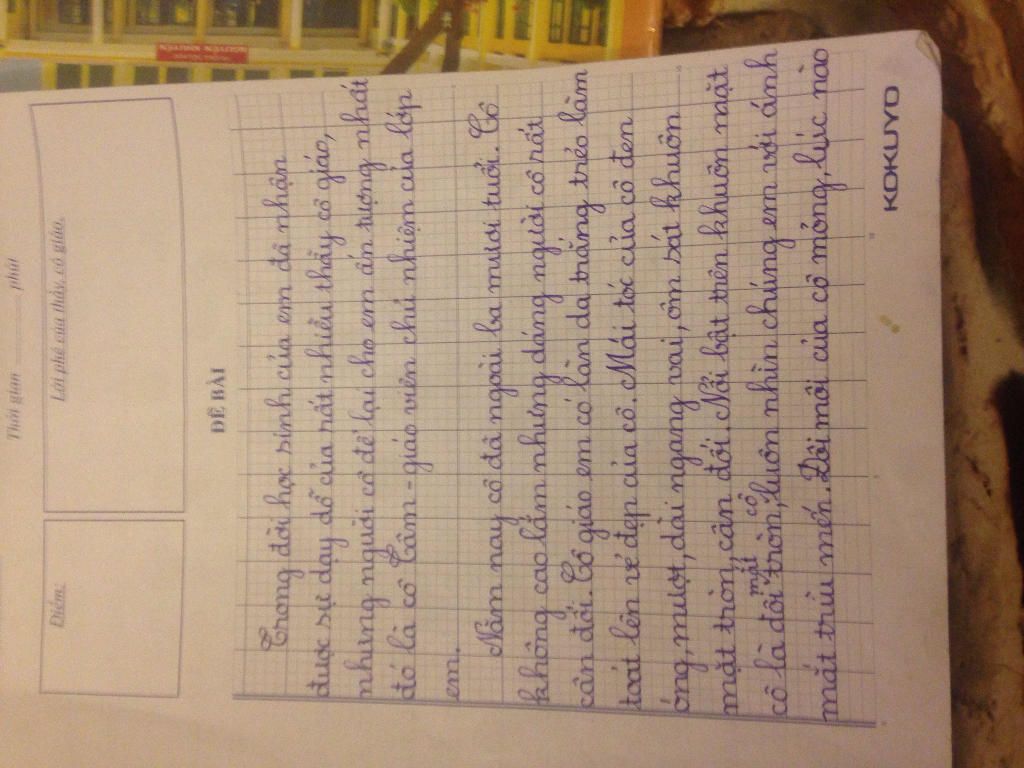 Thời gian phút
Điểm:
Lời phê của thầy, cô giáo.
ĐỀ BÀI
Trong đời học sinh của em đã nhận
được sự dạy dỗ của rất nhiều thầy cô giáo,
nhưng người cô để lại cho em ấn tượng nhất
đó là cô Tâm - giáo viên chủ nhiệm của lớp
em.
Năm nay cô đã ngoài ba mươi tuổi. Cô
không cao lắm nhưng dáng người cô rất
cân đối. Cô giáo em có làn da trắng trẻo làm
toát lên vẻ đẹp của cô. Mái tóc của cô đen
óng, mượt, dài ngang vai, ôm sát khuôn
mặt tròn, cân đối. Nổi bật trên khuôn mặt
cô là đôi mắt tròn, cô luôn nhìn chúng em với ánh
mắt trìu mến. Đôi môi của cô mỏng, lúc nào
KOKUYO